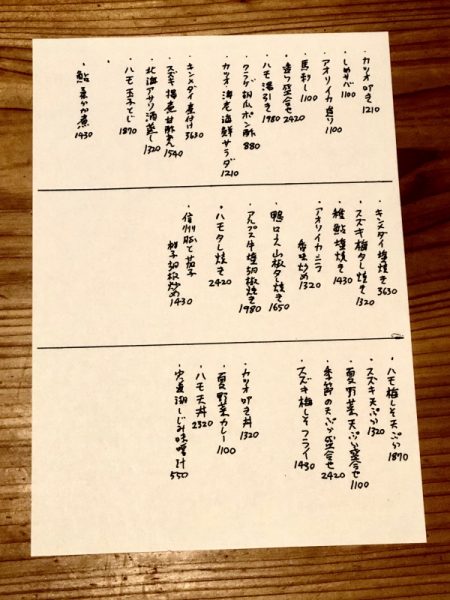 ・カツオ叩き 1210
・しめサバ 1100
・アオリイカ造り 1100
・馬刺し 1100
・造り盛合せ 2420
・ハモ湯引き 1980
・クラゲ胡瓜ポン酢 880
・カツオ海老海鮮サラダ 1210
・キンメダイ煮付け 3630
・スズキ揚煮甘酢煮 1540
・北海アサリ酒蒸し 1320
・ハモ玉子とじ 1870
・鮎 煮 1430
・キンメダイ塩焼き 3630
・スズキ梅タレ焼き 1320
・稚鮎塩焼き 1430
・アオリイカニラ
香味炒め 1320
・鴨ロース山椒タレ焼き 1650
・アルプス牛塩胡椒焼き 1980
・ハモタレ焼き 2420
・信州豚と茄子
柚子胡椒炒め 1430
・ハモ梅しそ天ぷら 1870
・スズキ天ぷら 1320
・夏野菜天ぷら盛合せ 1100
・季節の天ぷら盛合せ 2420
・スズキ梅しそフライ 1430
・カツオ叩き丼 1320
・夏野菜カレー 1100
・ハモ天丼 2320
・宍道湖しじみ味噌汁 550